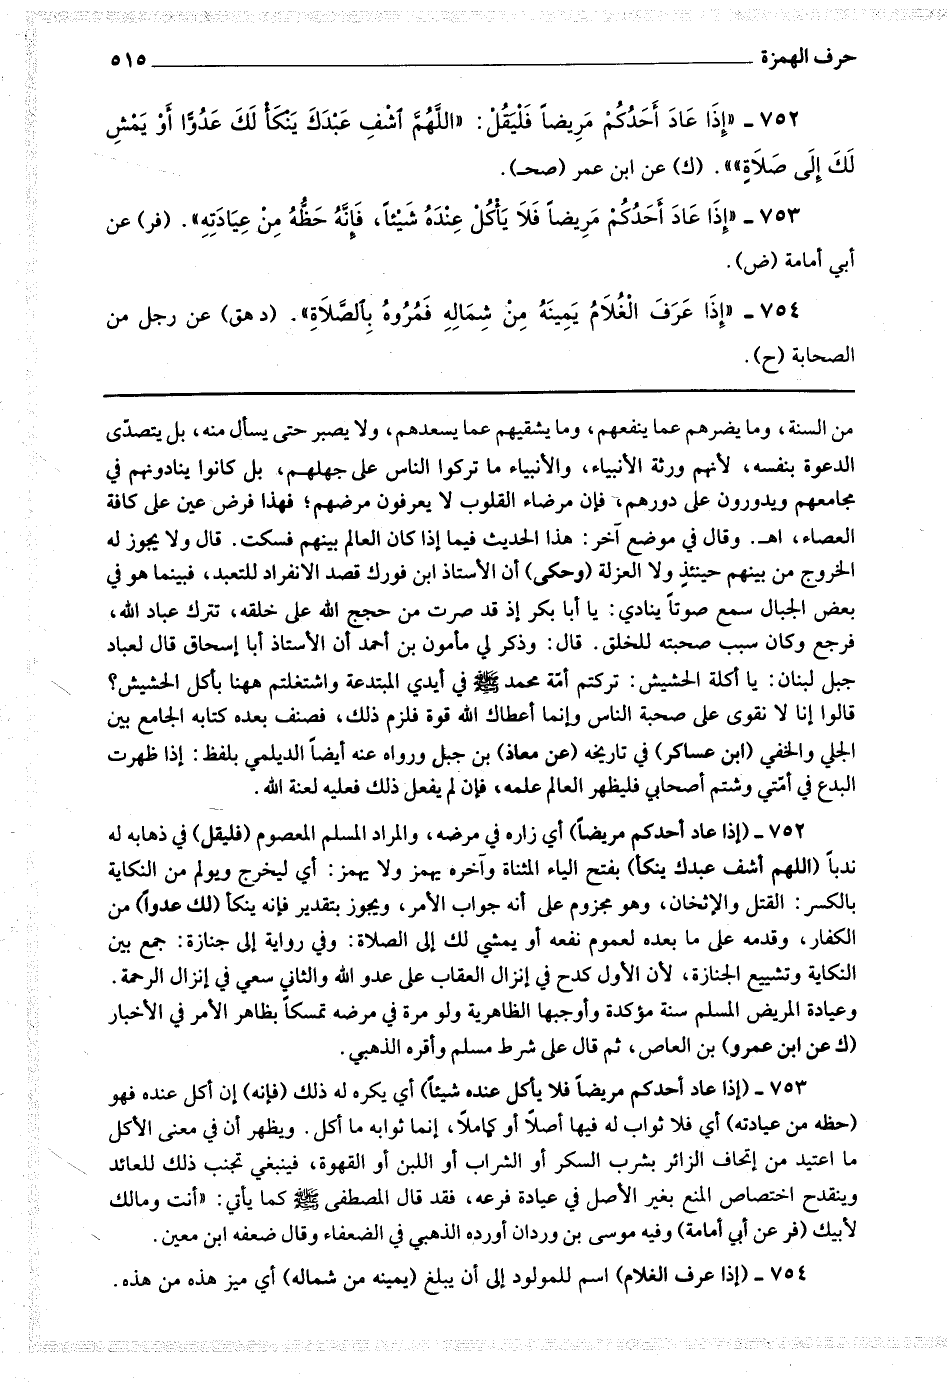 حرف الهمزة ٥١٥
٧٥٢ ـ «إِذَا عَادَ أَحَدُكُمْ مَرِيضاً فَلْيَقُلْ: «اللَّهُمَّ ٱشْفِ عَبْدَكَ يَنْكَأْ لَكَ عَدُوًّا أَوْ يَمْشِ
لَكَ إِلَى صَلَاةٍ»». (ك) عن ابن عمر (صحـ).
٧٥٣ ـ «إِذَا عَادَ أَحَدُكُمْ مَرِيضاً فَلَا يَأْكُلْ عِنْدَهُ شَيْئاً، فَإِنَّهُ حَظُّهُ مِنْ عِيَادَتِهِ». (فر) عن
أبي أمامة (ض).
٧٥٤ ـ «إِذَا عَرَفَ الْغُلَامُ يَمِينَهُ مِنْ شِمَالِهِ فَمُرُوهُ بِٱلصَّلَاةِ». (د هق) عن رجل من
الصحابة (ح).
من السنة، وما يضرهم عما ينفعهم، وما يشقيهم عما يسعدهم، ولا يصبر حتى يسأل منه، بل يتصدّى
الدعوة بنفسه، لأنهم ورثة الأنبياء، والأنبياء ما تركوا الناس على جهلهم، بل كانوا ينادونهم في
مجامعهم ويدورون على دورهم، فإن مرضاء القلوب لا يعرفون مرضهم؛ فهذا فرض عين على كافة
العصاء، اهـ. وقال في موضع آخر: هذا الحديث فيما إذا كان العالم بينهم فسكت. قال ولا يجوز له
الخروج من بينهم حينئذٍ ولا العزلة (وحكى) أن الأستاذ ابن فورك قصد الانفراد للتعبد، فبينما هو في
بعض الجبال سمع صوتاً ينادي: يا أبا بكر إذ قد صرت من حجج الله على خلقه، تترك عباد الله،
فرجع وكان سبب صحبته للخلق. قال: وذكر لي مأمون بن أحمد أن الأستاذ أبا إسحاق قال لعباد
جبل لبنان: يا أكلة الحشيش: تركتم أمّة محمد ﷺ في أيدي المبتدعة واشتغلتم ههنا بأكل الحشيش؟
قالوا إنا لا نقوى على صحبة الناس وإنما أعطاك الله قوة فلزم ذلك، فصنف بعده كتابه الجامع بين
الجلي والخفي (ابن عساكر) في تاريخه (عن معاذ) بن جبل ورواه عنه أيضاً الديلمي بلفظ: إذا ظهرت
البدع في أمّتي وشتم أصحابي فليظهر العالم علمه، فإن لم يفعل ذلك فعليه لعنة الله.
٧٥٢ ـ (إذا عاد أحدكم مريضاً) أي زاره في مرضه، والمراد المسلم المعصوم (فليقل) في ذهابه له
ندباً (اللهم أشف عبدك ينكأ) بفتح الياء المثناة وآخره يهمز ولا يهمز: أي ليخرج ويولم من النكاية
بالكسر: القتل والإثخان، وهو مجزوم على أنه جواب الأمر، ويجوز بتقدير فإنه ينكأ (لك عدواً) من
الكفار، وقدمه على ما بعده لعموم نفعه أو يمشي لك إلى الصلاة: وفي رواية إلى جنازة: جمع بين
النكاية وتشييع الجنازة، لأن الأول كدح في إنزال العقاب على عدو الله والثاني سعي في إنزال الرحمة.
وعيادة المريض المسلم سنة مؤكدة وأوجبها الظاهرية ولو مرة في مرضه تمسكاً بظاهر الأمر في الأخبار
(ك عن ابن عمرو) بن العاص، ثم قال على شرط مسلم وأقره الذهبي.
٧٥٣ ـ (إذا عاد أحدكم مريضاً فلا يأكل عنده شيئاً) أي يكره له ذلك (فإنه) إن أكل عنده فهو
(حظه من عيادته) أي فلا ثواب له فيها أصلاً أو كاملاً، إنما ثوابه ما أكل. ويظهر أن في معنى الأكل
ما اعتيد من إتحاف الزائر بشرب السكر أو الشراب أو اللبن أو القهوة، فينبغي تجنب ذلك للعائد
وينقدح اختصاص المنع بغير الأصل في عيادة فرعه، فقد قال المصطفى ﷺ كما يأتي: «أنت ومالك
لأبيك (فر عن أبي أمامة) وفيه موسى بن وردان أورده الذهبي في الضعفاء وقال ضعفه ابن معين.
٧٥٤ ـ (إذا عرف الغلام) اسم للمولود إلى أن يبلغ (يمينه من شماله) أي ميز هذه من هذه.